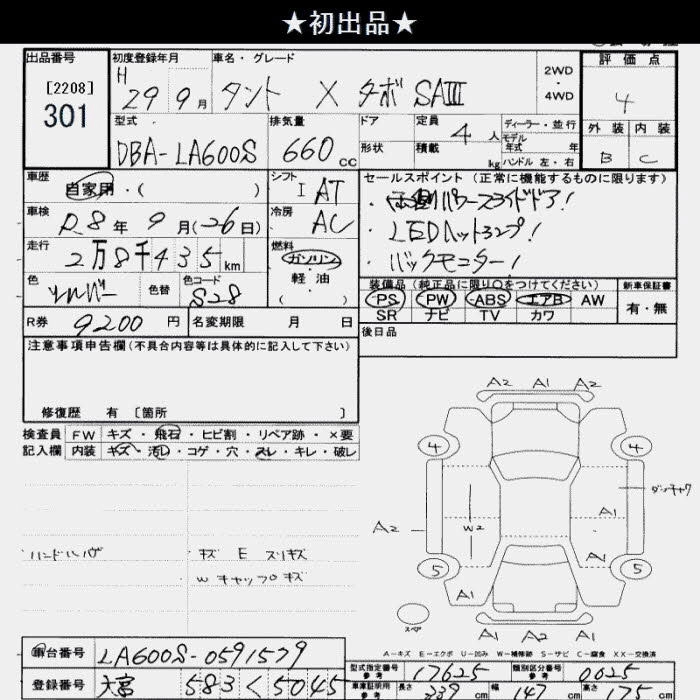 ★初出品★
出品番号
[2208]
301
初度登録年月
H
29 9月
車名・グレード
タント X ターボ SAⅢ
2WD
・
4WD
評価点
4
外装 内装
B C
型式
DBA-LA600S
排気量
660 cc
ドア
形状
定員 4人
積載 kg
ディーラー・並行
モデル
年式 年
ハンドル 左・右
車歴
自家用・( )
シフト
I AT
車検
R8年9月(26日)
冷房
AC
走行
2万8千435km
燃料
ガソリン
・
軽油
( )
色
シルバー
色替
色コード
S28
R券 9200円
名変期限 月 日
セールスポイント(正常に機能するものに限ります)
・両側パワースライドドア!
・LEDヘッドランプ!
・バックモニター!
装備品(純正品に限り○をつけてください)
PS PW ABS エアB AW
SR ナビ TV カワ
新車保証書
有・無
後日品
注意事項申告欄(不具合内容等は具体的に記入して下さい)
修復歴 有 〔箇所 〕
検査員
記入欄
FW キズ・飛石・ヒビ割・リペア跡・×要
内装 キズ・汚レ・コゲ・穴・スレ・キレ・破レ
キズ E スリキズ
W キャップキズ
A2 A1 A2
4 4
A1
A2
W2
A1
5 5
A1 A1
スペア
A1 A2 A1
A-キズ E-エクボ U-凹み W-補修跡 S-サビ C-腐食 XX-交換済
車台番号 LA600S-0591579
登録番号 大宮 583 く 5045
型式指定番号
参考
17625
類別区分番号
参考
0025
車庫証明用
参考
長さ 339cm
幅 147cm
高さ 175cm